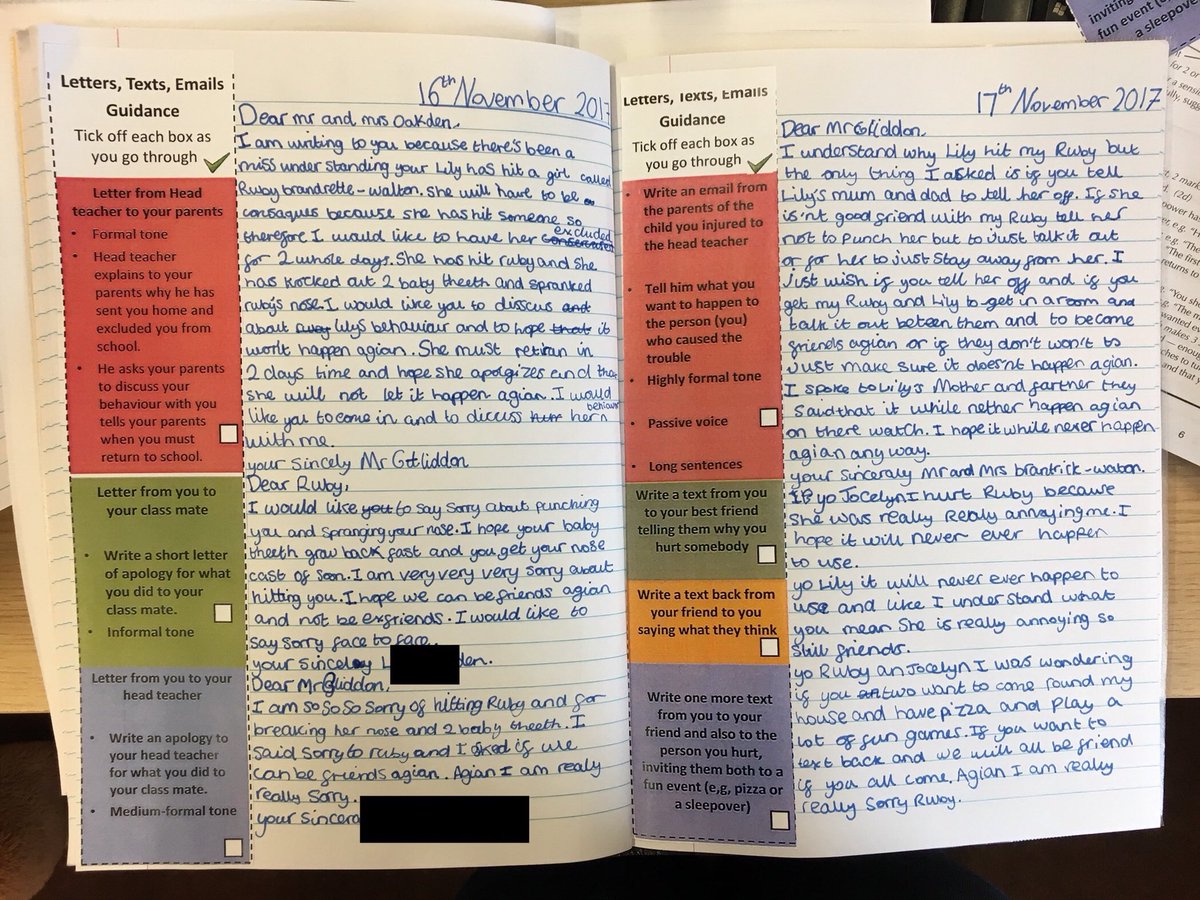 Letters, Texts, Emails
Guidance
Tick off each box as
you go through
Letter from Head
teacher to your parents
• Formal tone
• Head teacher
explains to your
parents why he has
sent you home and
excluded you from
school.
• He asks your parents
to discuss your
behaviour with you
tells your parents
when you must
return to school.
Letter from you to
your class mate
• Write a short letter
of apology for what
you did to your
class mate.
• Informal tone
Letter from you to your
head teacher
• Write an apology to
your head teacher
for what you did to
your class mate.
• Medium-formal tone
16th November 2017
Dear mr and mrs Oakden,
I am writing to you because there's been a
miss under standing your Lily has hit a girl called
Ruby brandrette-walton. she will have to be
consaques because she has hit someone so
therefore I would like to have her excluded
for 2 whole days. She has hit ruby and She
has knocked out 2 baby theeth and spranked
ruby's nose. I would like you to disscus and
about lilys behaviour and to hope that it
won't happen agian. She must retiran in
2 days time and hope she apolgizes and that
she will not let it happen agian. I would
like you to come in and to discuss her behaviour
with me.
your sincely Mr Gliddon
Dear Ruby,
I would like you to say Sorry about punching
you and spranging your nose. I hope your baby
theeth grow back fast and you get your nose
cast of soon. I am very very very sorry about
hitting you. I hope we can be friends agian
and not be exfriends. I would like to
say sorry face to face.
your Sinceley L den.
Dear Mr Gliddon,
I am so so so sorry of hitting Ruby and for
breaking her nose and 2 baby theeth. I
said sorry to ruby and I asked if we
can be friends agian. Agian I am realy
really Sorry.
your sincera
Letters, Texts, Emails
Guidance
Tick off each box as
you go through
• Write an email from
the parents of the
child you injured to
the head teacher
• Tell him what you
want to happen to
the person (you)
who caused the
trouble
• Highly formal tone
• Passive voice
• Long sentences
Write a text from you
to your best friend
telling them why you
hurt somebody
Write a text back from
your friend to you
saying what they think
Write one more text
from you to your
friend and also to the
person you hurt,
inviting them both to a
fun event (e,g, pizza or
a sleepover)
17th November 2017
Dear Mr Gliddon.
I understand why Lily hit my Ruby but
the only thing I asked is if you tell
Lily's mum and dad to tell her off. If she
is'nt good friend with my Ruby tell her
not to punch her but to just talk it out
or for her to just stay away from her. I
just wish if you tell her off and if you
get my Ruby and Lily to get in a room and
talk it out beteen them and to become
friends agian or if they don't won't to
Just make sure it does'nt happen agian.
I spoke to Lily's Mother and farther they
said that it while nether happen agian
on there watch. I hope it while never happen
agian any way.
your sinceraly Mr and Mrs brantrick-walton.
yo Jocelyn I hurt Ruby because
She was really Realy annoying me. I
hope it will never ever happen
to use.
yo Lily it will never ever happen to
use and like I understand what
you mean She is really annoying so
still friends.
yo Ruby an Jocelyn I was wondering
if you two want to come round my
house and have pizza and play a
lot of fun games. If you want to
text back and we will all be friend
if you all come. Agian I am really
really Sorry Ruby.
inviting
fun event (e
a sleepover
6